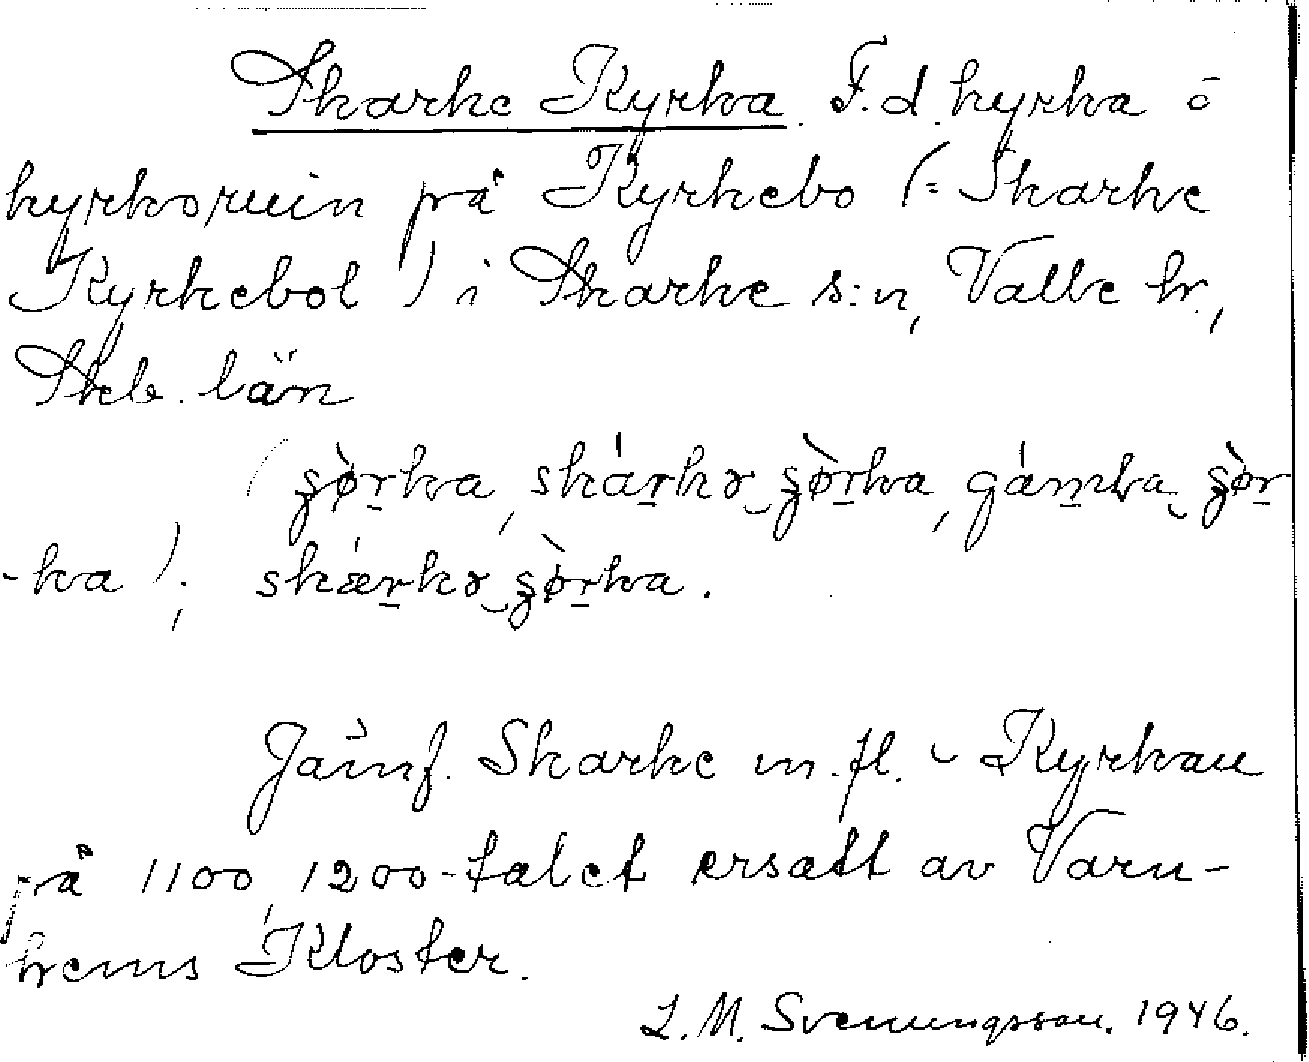 Skarke Kyrka. F.d. kyrka o
kyrkoruin på Kyrkebo (= Skarke
Kyrkebol) i Skarke s:n, Valle hr.,
Skb. län
(ʂø̀r̲ka, skár̲kɤ‿ʂø̀r̲ka, gám̲ka‿ʂø̀r̲
-ka); skǽr̲kɤ‿ʂø̀r̲ka.
Jämf. Skarke m.fl. – Kyrkan
på 1100, 1200-talet ersatt av Varn-
hems Kloster.
L.M. Svenungsson. 1946.